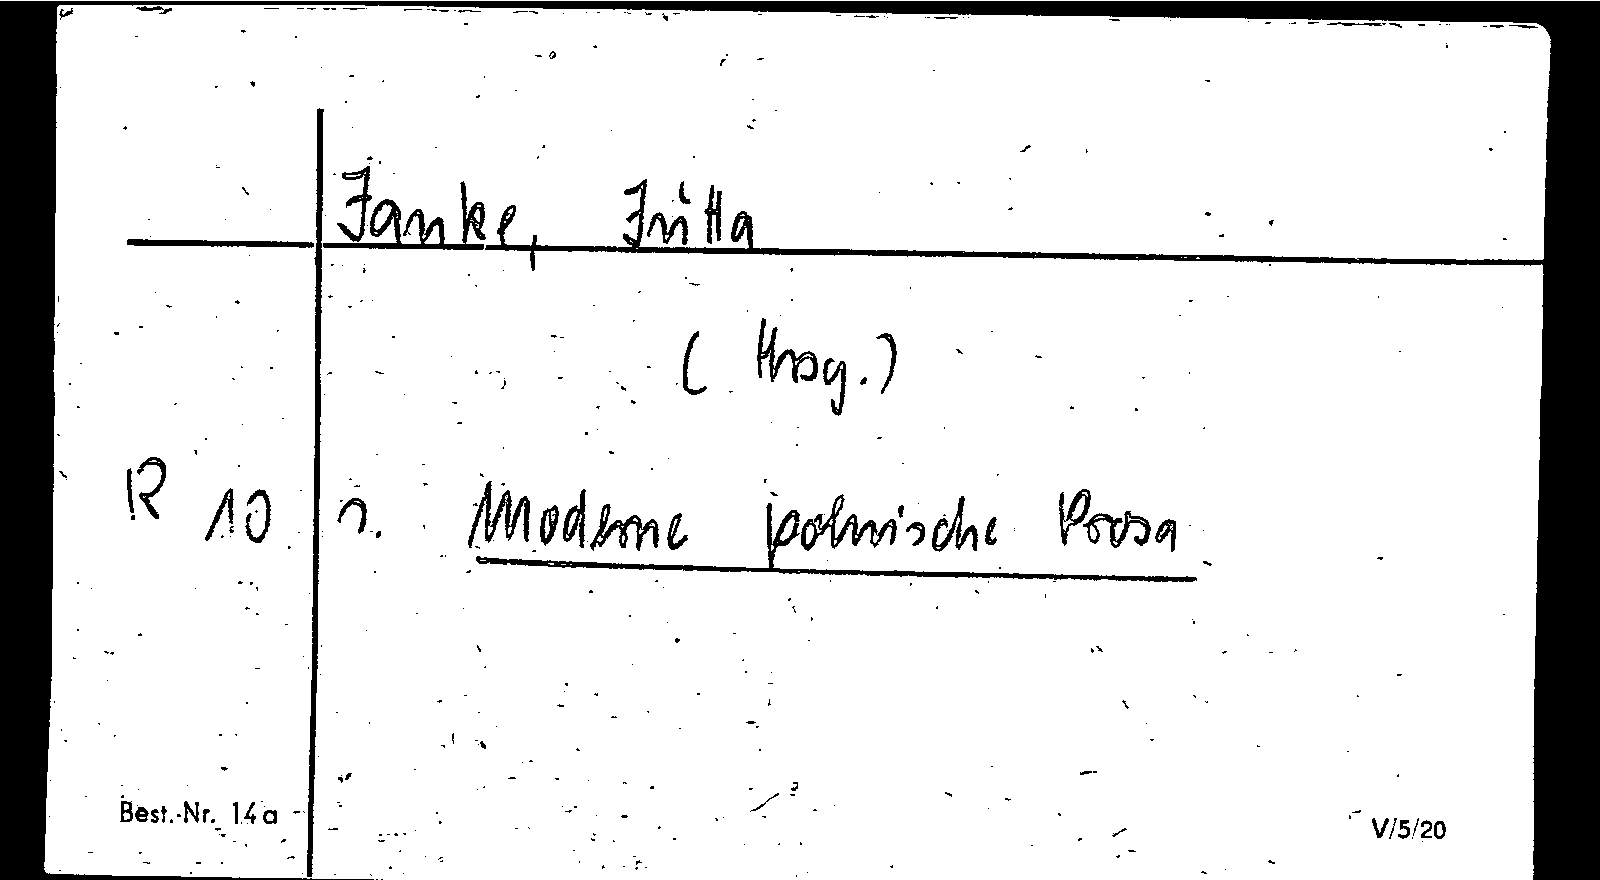 Janke, Jutta
(Hrsg.)
R 10 s. Moderne polnische Prosa
Best.-Nr. 14a
V/5/20